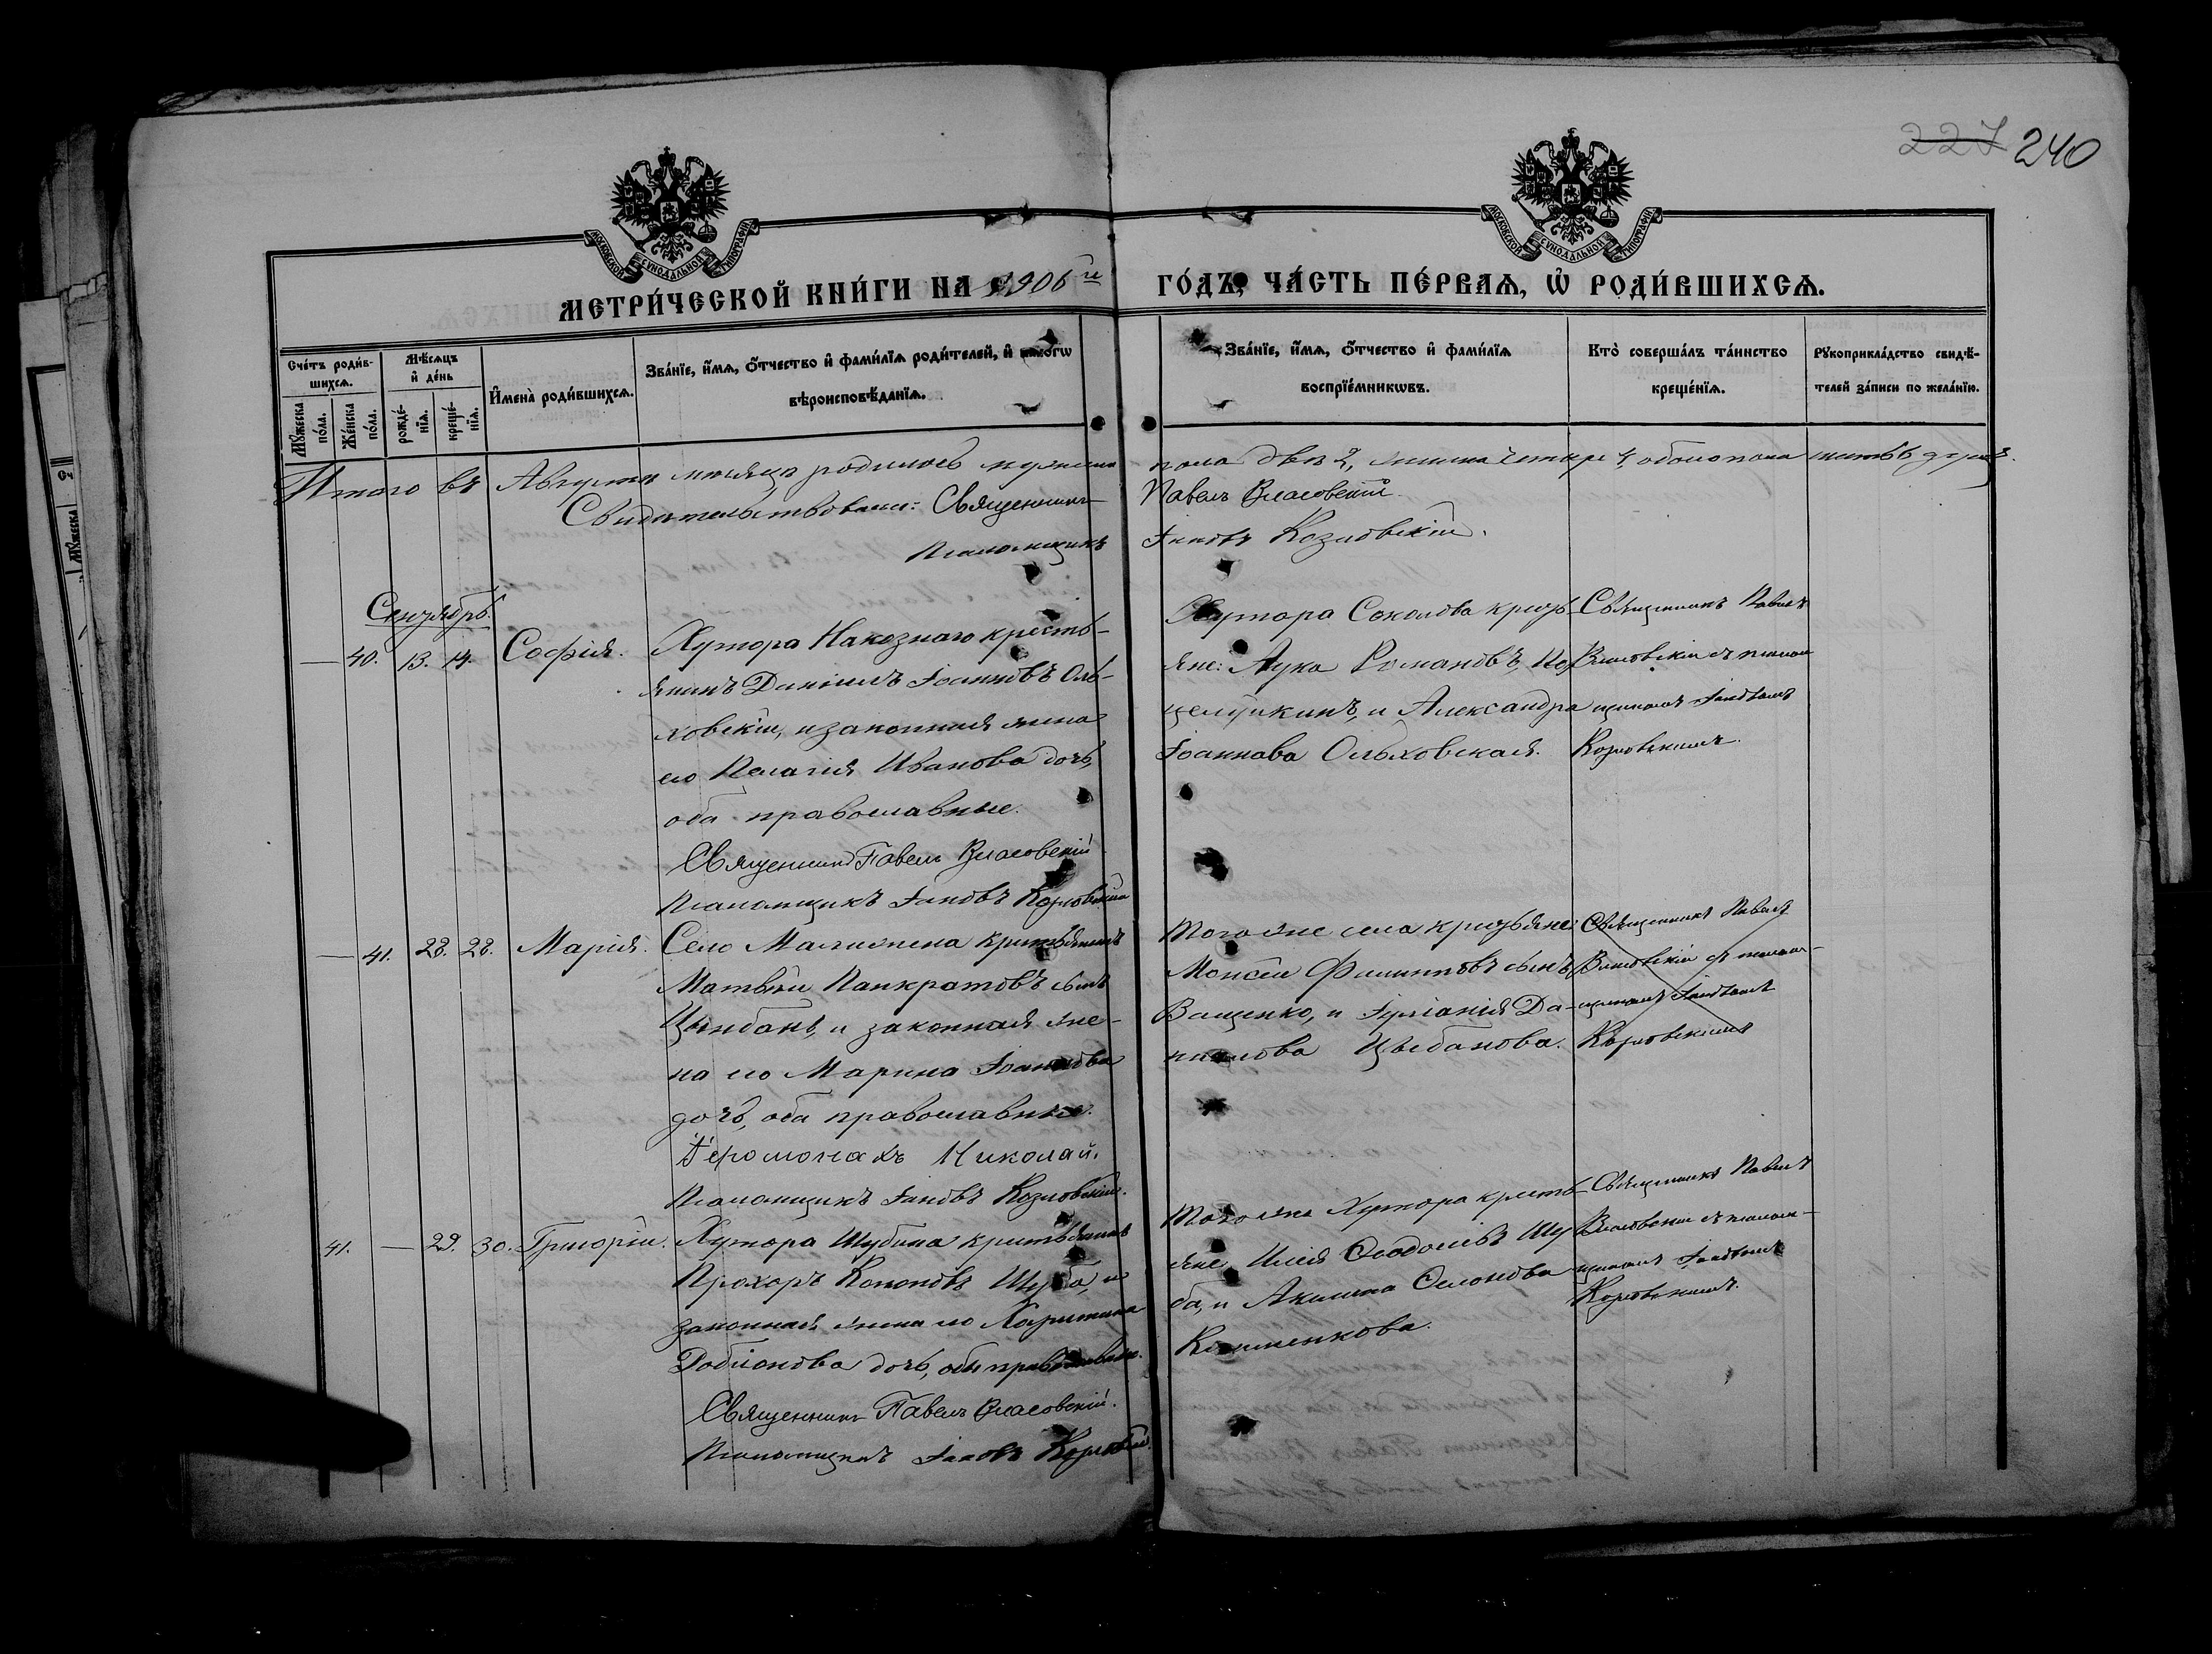 227 240
МОСКОВСКОЙ СУНОДАЛЬНОЙ ТИПОГРАФІИ
МОСКОВСКОЙ СУНОДАЛЬНОЙ ТИПОГРАФІИ
МЕТРИ́ЧЕСКОЙ КНИ́ГИ НА 1906 го
ГО́ДЪ, ЧА́СТЬ ПЕ́РВАѦ, Ѡ҆ РОДИ́ВШИХСѦ.
Сче́тъ роди́в-
шихсѧ.
Мꙋ́жеска по́ла.
Же́нска по́ла.
Мѣ́сѧцъ
и҆ де́нь
рожде́-
нїѧ.
креще́-
нїѧ.
И҆мена̀ роди́вшихсѧ.
Зва́нїе, и҆́мѧ, ѻ҆́тчество и҆ фами́лїѧ роди́телей, и҆ како́гѡ
вѣроисповѣ́данїѧ.
Зва́нїе, и҆́мѧ, ѻ҆́тчество и҆ фами́лїѧ
воспрїе́мникѡвъ.
Кто̀ соверша́лъ та́инство
креще́нїѧ.
Рꙋкоприкла́дство свидѣ́-
телей за́писи по жела́нїю.
Итого въ Августѣ мѣсяцѣ родилось мужеска
пола два 2, женска четыре 4, обоего пола шесть 6 душъ.
Свидѣтельствовали: Священникъ
Павелъ Власовскій.
Псаломщикъ
Іаковъ Козловскій.
Сентябрь.
— 40. 13. 14. София.
Хутора Наказного кресть-
янинъ Даніилъ Іоанновъ Оль-
ховскій, и законная жена
его Пелагія Иванова дочь,
оба православные.
Священникъ Павелъ Власовскій
Псаломщикъ Іаковъ Козловскій
Хутора Соколова кресть-
яне: Лука Романовъ По-
целуйкинъ, и Александра
Іоаннова Ольховская.
Священникъ Павелъ
Власовскій съ псалом-
щикомъ Іаковомъ
Козловскимъ.
— 41. 28. 28. Марія.
Село крестьянинъ
Матвѣй Панкратовъ сынъ
Цыбань, и законная же-
на его Марина Іоаннова
дочь, оба православные.
Іеромонахъ Николай.
Псаломщикъ Іаковъ Козловскій.
Того же села крестьяне
Моисей Филипповъ сынъ
Ващенко, и Іуліанія Да-
ниилова Цыбанова.
Священникъ Павелъ
Власовскій съ псалом-
щикомъ Іаковомъ
Козловскимъ
41. — 29. 30. Григорій.
Хутора Шубина крестьянинъ
Прохоръ Кононовъ и
законная жена его Харитина
Родіонова дочь, оба православные.
Священникъ Павелъ Власовскій.
Псаломщикъ Іаковъ Козловскій.
Того же Хутора кресть-
яне Илія Ѳеодосіевъ Шу-
ба, и Акилина
Клименкова.
Священникъ Павелъ
Власовскій съ псалом-
щикомъ Іаковомъ
Козловскимъ.